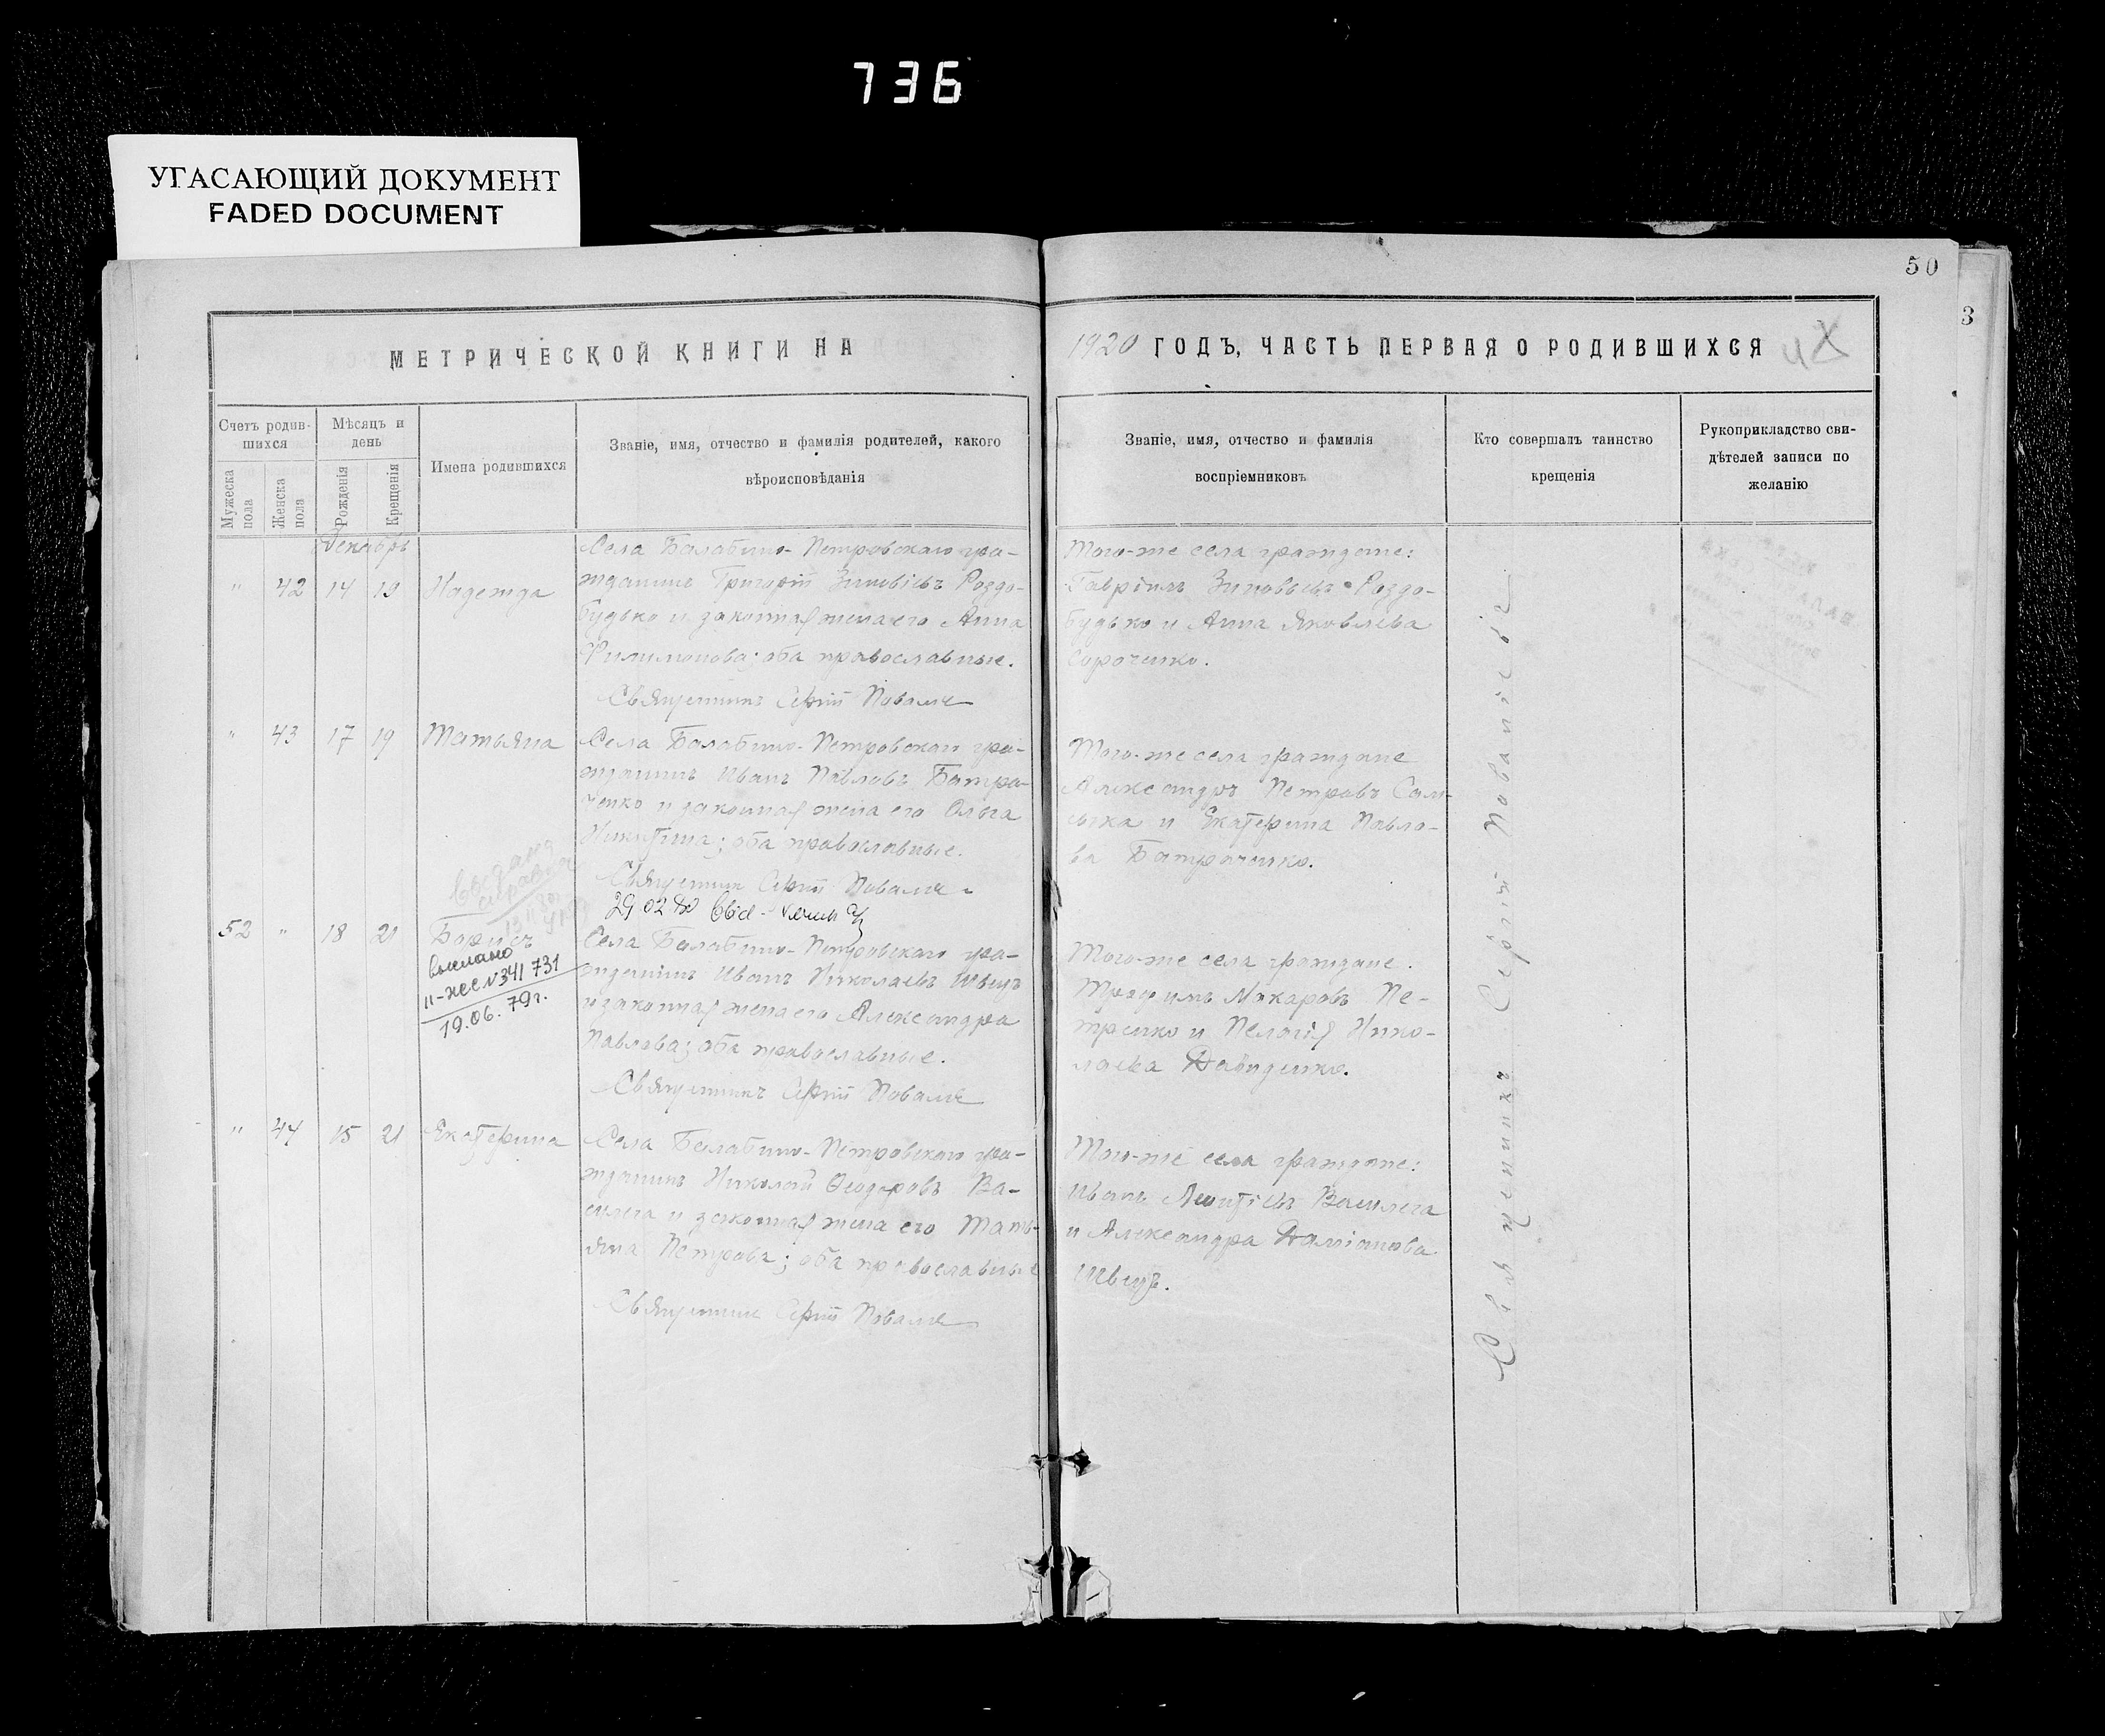 736
УГАСАЮЩИЙ ДОКУМЕНТ
FADED DOCUMENT
50
3
МЕТРИЧЕСКОЙ КНИГИ НА
1920 ГОДЪ, ЧАСТЬ ПЕРВАЯ О РОДИВШИХСЯ
Счетъ родив-
шихся
Мужеска пола
Женска пола
Мѣсяцъ и
день
Рожденія
Крещенія
Имена родившихся
Званіе, имя, отчество и фамилія родителей, какого
вѣроисповѣданія
Званіе, имя, отчество и фамилія
воспріемниковъ
Кто совершалъ таинство
крещенія
Рукоприкладство сви-
дѣтелей записи по
желанію
Декабрь
" 42 14 19 Надежда
Села Балабино-Петровскаго гра-
жданинъ Григорій Зиновіевъ Роздо-
будько и законная жена его Анна
Филимонова; оба православные.
Священникъ Сергій
Того-же села граждане:
Гавріилъ Зиновьевъ Роздо-
будько и Анна Яковлева
Сороченко.
" 43 17 19 Татьяна
Села Балабино-Петровскаго гра-
жданинъ Иванъ Павловъ Батра-
ченко и законная жена его Ольга
Никитина; оба православные.
Священникъ Сергій
Того-же села граждане
Александръ Петровъ
и Екатерина Павло-
ва Батраченко.
29.02.80
52 " 18 21 Борисъ
выслано
II-ЖС № 341731
19.06.79г.
Села Балабино-Петровскаго гра-
жданинъ Иванъ Николаевъ Швецъ
и законная жена его Александра
Павлова; оба православные.
Священникъ Сергій
Того-же села граждане.
Трофимъ Макаровъ Пе-
тренко и Пелагія Нико-
лаева Давиденко.
" 44 15 21 Екатерина
Села Балабино-Петровскаго гра-
жданинъ Николай Феодоровъ Ва-
силега и законная жена его Тать-
яна Петрова; оба православные
Священникъ Сергій
Того-же села граждане:
Иванъ Леонтіевъ Василега
и Александра Даміанова
Швецъ.
Священникъ Сергій